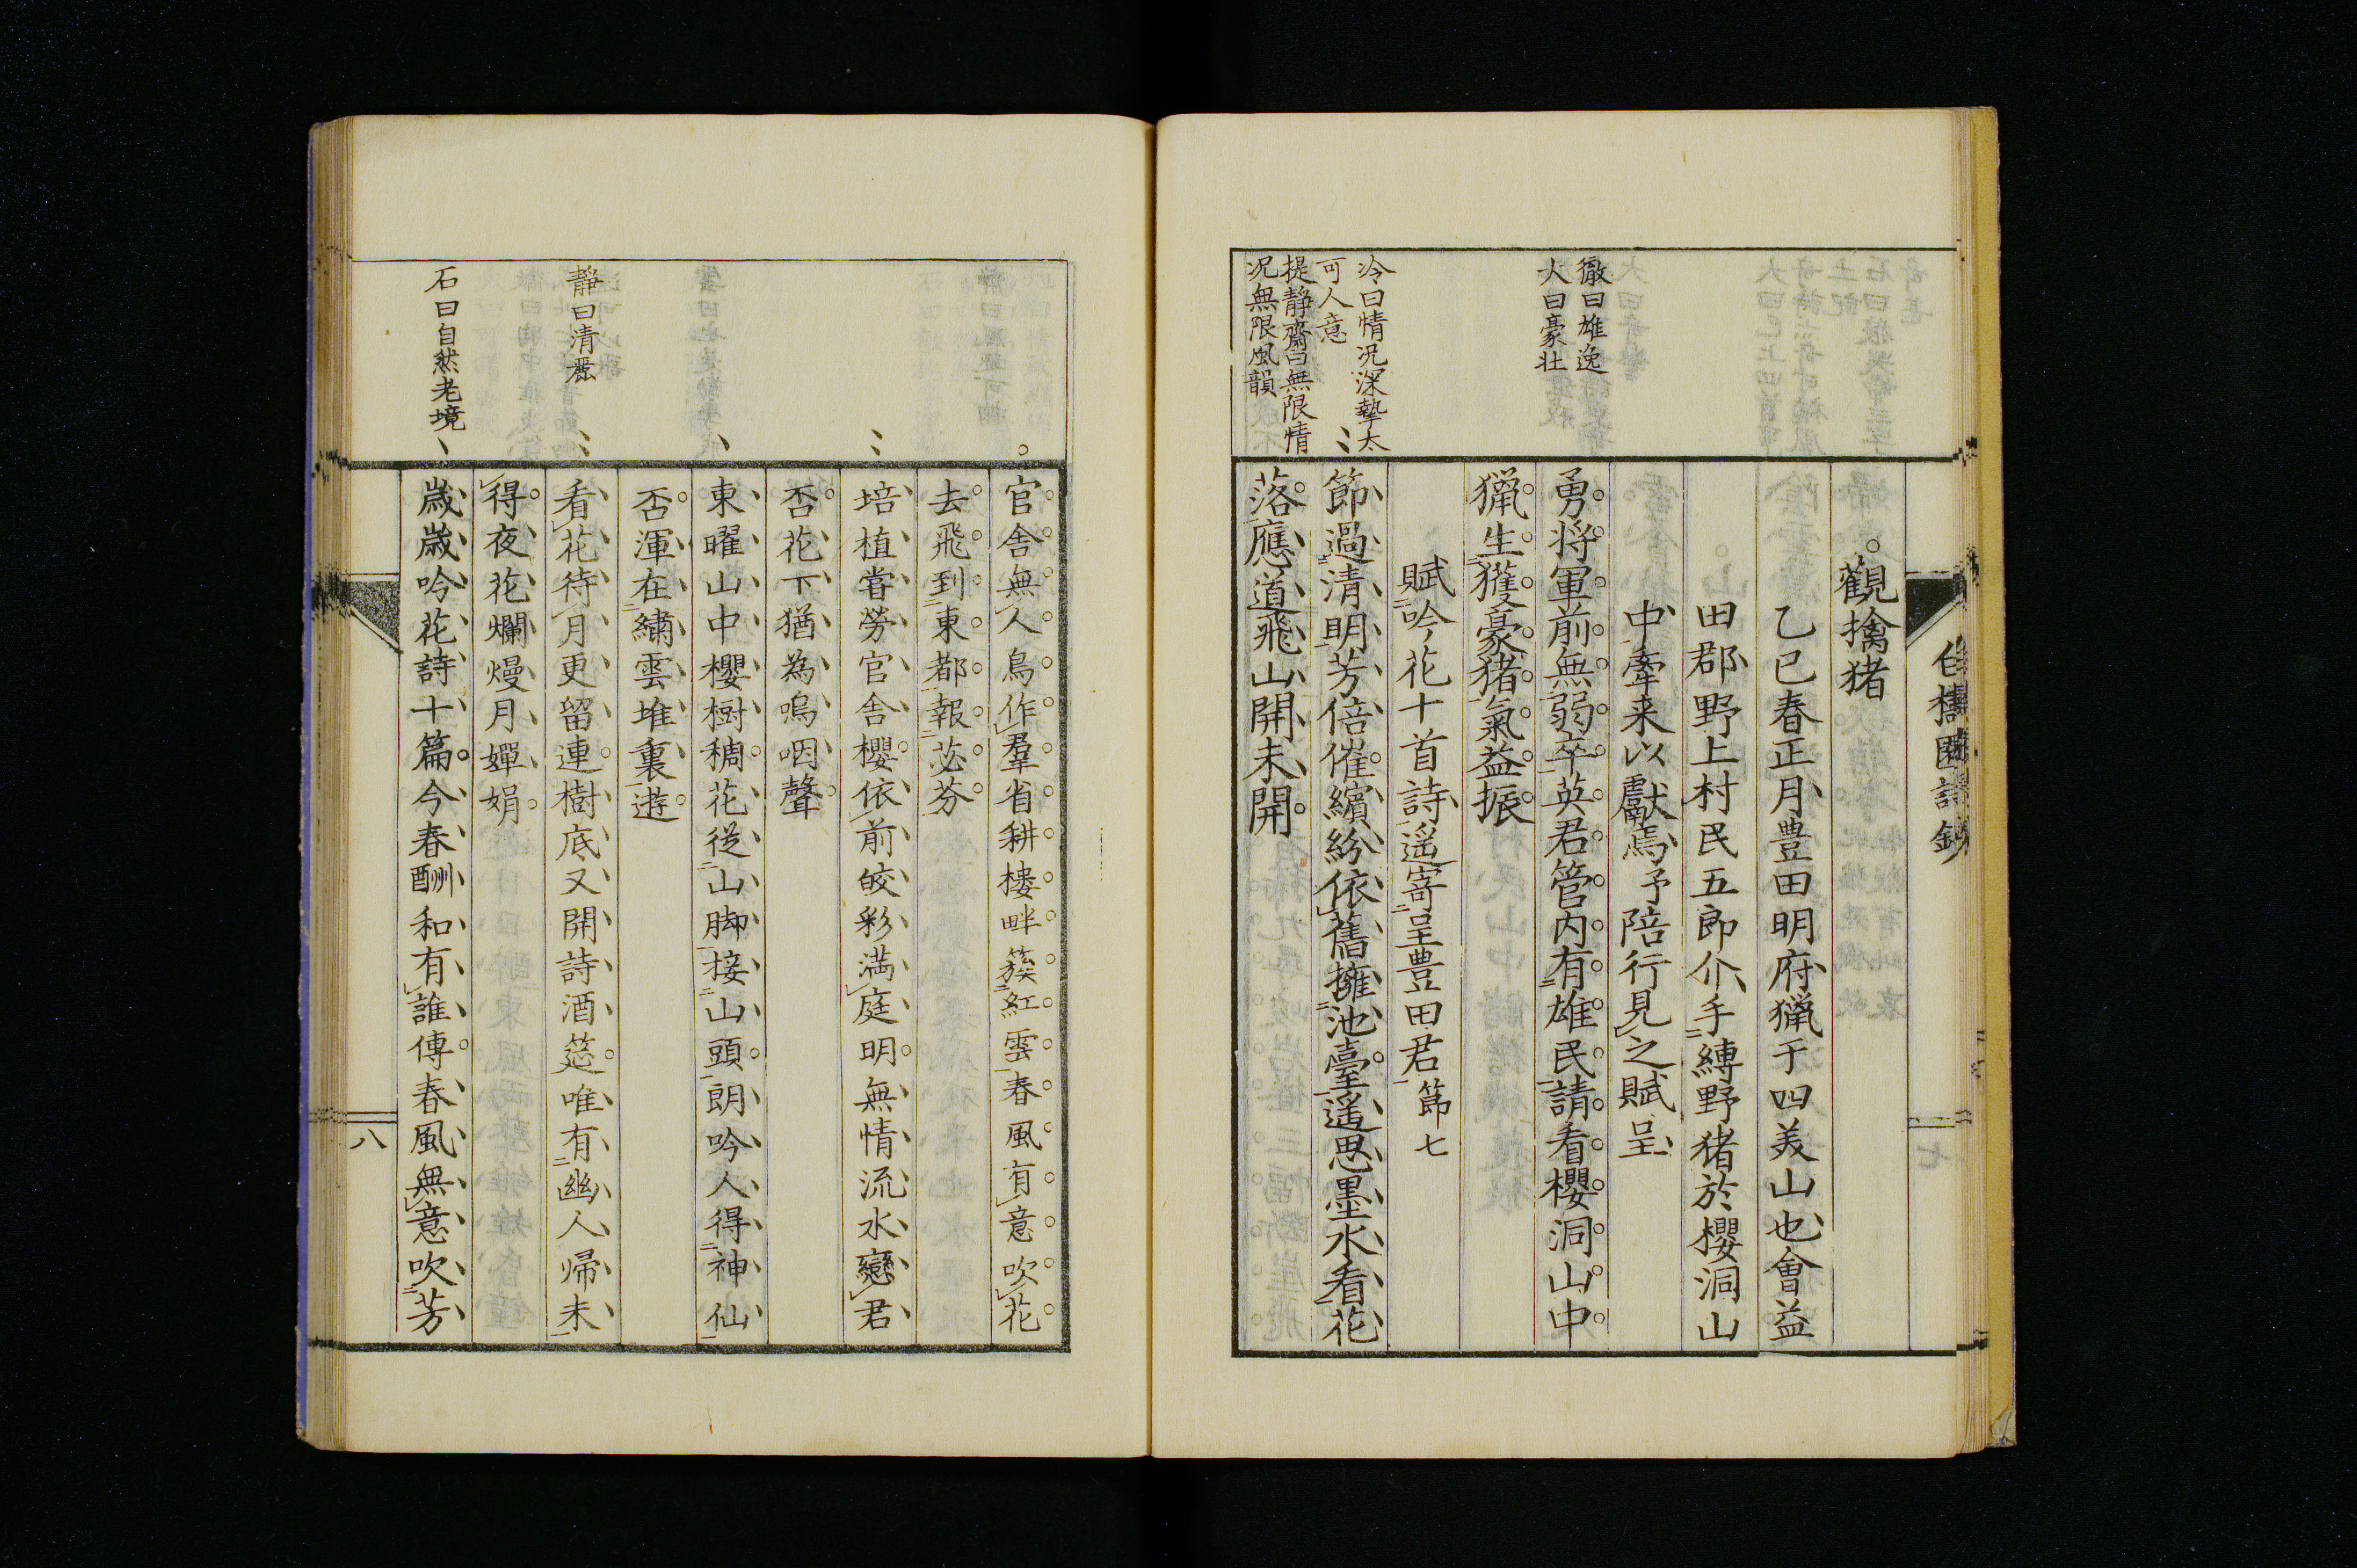 觀擒猪
乙巳春正月豊田明府猟于四美山也會益
田郡野上村民五郎介手縳野猪於櫻洞山
中牽来以獻焉予陪行見之賦呈
勇将軍前無弱卒英君管内有雄民請看櫻洞山中
猟生獲豪猪氣益振
賦吟花十首詩遥寄呈豊田君節七
節過清明芳倍催繽紛依舊擁池臺遥思墨水看花
落應道飛山開未開
徹曰雄逸
大曰豪壮
冷曰情況深摯太
可人意
提靜齋曰無限情
況無限風韻
七
官舎無人鳥作羣省耕樓畔簇紅雲春風有意吹花
去飛到東都報苾芬
培植嘗勞官舎櫻依前皎彩満庭明無情流水戀君
否花下猶為嗚咽聲
東曜山中櫻樹稠花従山脚接山頭朗吟人得神仙
否渾在繡雲堆裏遊
看花待月更留連樹底又開詩酒筵唯有幽人帰未
得夜花爛熳月嬋娟
歳歳吟花詩十篇今春酬和有誰傳春風無意吹芳
靜曰清麗
石曰自然老境
八